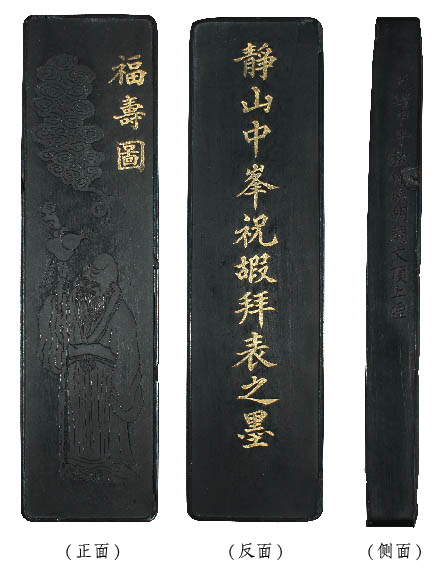 福壽圖
靜山中峯祝嘏拜表之墨
(正面)
(反面)
(側面)